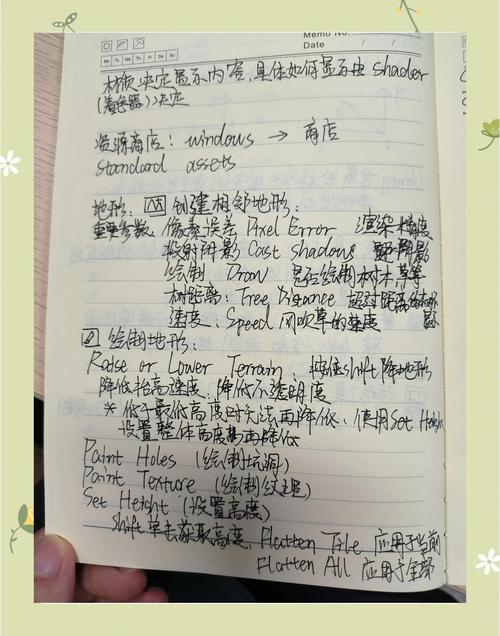 Memo No.
Date / /
Mo Tu We Th Fr Sa Su
材质决定显示内容,具体如何显示由shader
(着色器)决定
资源商店: windows → 商店
standard assets
地形: 创建相邻地形:
重要参数 像素误差 Pixel Error 渲染精度
投射阴影 Cast Shadows 阴影
绘制 Draw 是否绘制树木草等
树距离: Tree Distance 超过距离的树
速度: Speed 风吹草的速度
绘制地形:
Raise or Lower Terrain, 按住shift降地形
降低抬高速度,降低不透明度
* 低于最低高度时无法再降低,使用Set Height
设置整体高度再降低
Paint Holes (绘制坑洞)
Paint Texture (绘制纹理)
Set Height (设置高度)
shift单击获取高度, Flatten Tile 应用于当前
Flatten All 应用于全部